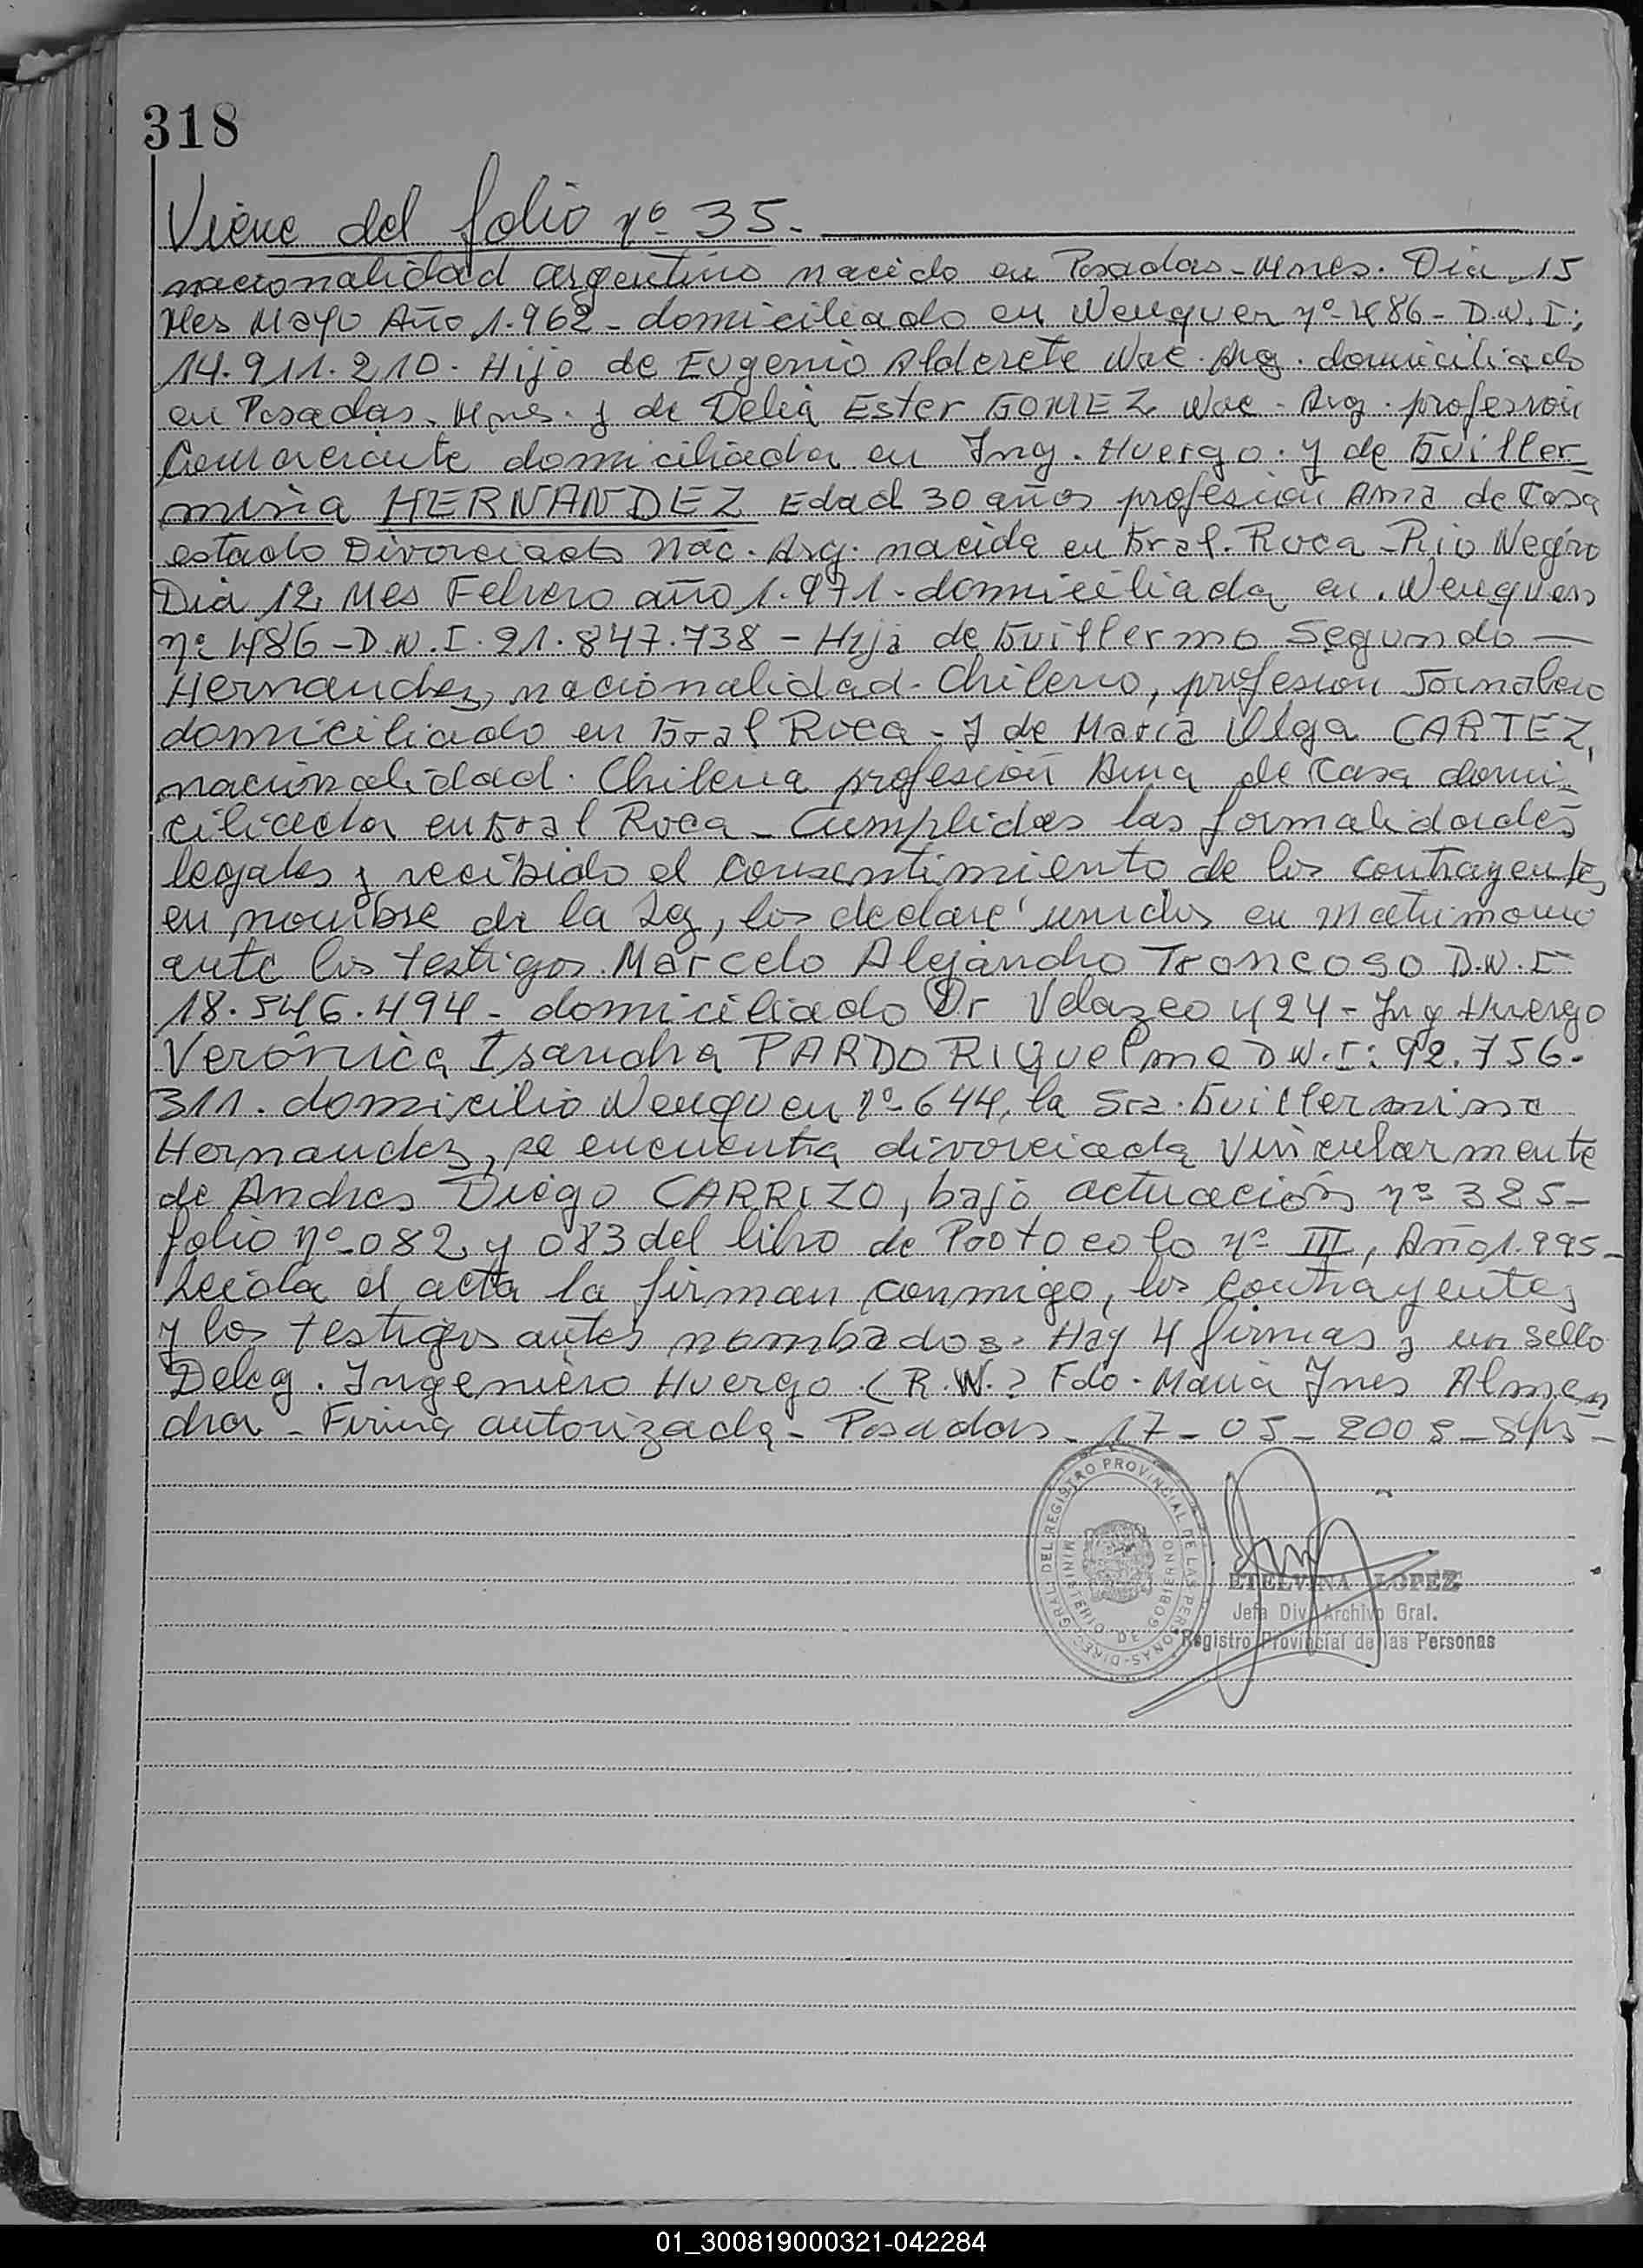 318
Viene del folio nº 35.
nacionalidad argentino nacido en Posadas - Mnes. Dia 15
Mes Mayo Año 1.962 - domiciliado en Neuquen nº 486 - D.N.I:
14.911.210. Hijo de Eugenio Alderete Nac. Arg. domiciliado
en Posadas. Mnes. y de Delia Ester GOMEZ Nac. Arg. profesion
Comerciante domiciliada en Ing. Huergo. y de Guiller
mina HERNANDEZ Edad 30 años profesion Ama de Casa
estado Divorciada Nac. Arg. nacida en Gral. Roca - Rio Negro
Dia 12 Mes Febrero año 1.971 - domiciliada en. Neuquen
nº 486 - D.N.I. 21.847.738 - Hija de Guillermo Segundo —
Hernandez, nacionalidad - Chileno, profesion Jornalero
domiciliado en Gral Roca - y de Maria Olga CARTEZ,
nacionalidad. Chilena profesión Ama de Casa domi
ciliada en Gral Roca - Cumplidas las formalidades
legales y recibido el consentimiento de los contrayentes
en nombre de la Ley, los declare unidos en matrimonio
ante los testigos. Marcelo Alejandro Troncoso D.N.I
18.546.494 - domiciliado Dr Velazco 424 - Ing Huergo
Verónica Isandra PARDO RIquelme D.N.I: 92.756.
311. domicilio Neuquen nº 644, la Sra. Guillermina
Hernandez, se encuentra divorciada vincularmente
de Andres Diego CARRIZO, bajo actuación nº 325 -
folio nº 082 y 083 del libro de Protocolo nº III, Año 1.995 -
Leida el acta la firman conmigo, los contrayentes
y los testigos antes nombados. Hay 4 firmas y un sello
Deleg. Ingeniero Huergo (R.N.) Fdo. Maria Ines Almen
dra - Firma autorizada - Posadas - 17 - 05 - 2002 -
DIREC. GRAL. DEL REGISTRO PROVINCIAL DE LAS PERSONAS
MINISTERIO DE GOBIERNO
ETELVINA LOPEZ
Jefa Div. Archivo Gral.
Registro Provincial de las Personas
01_300819000321-042284